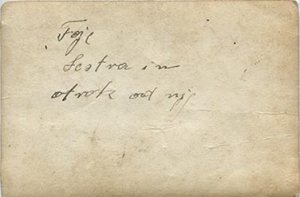 Foje
Sestra in
otroke od nje